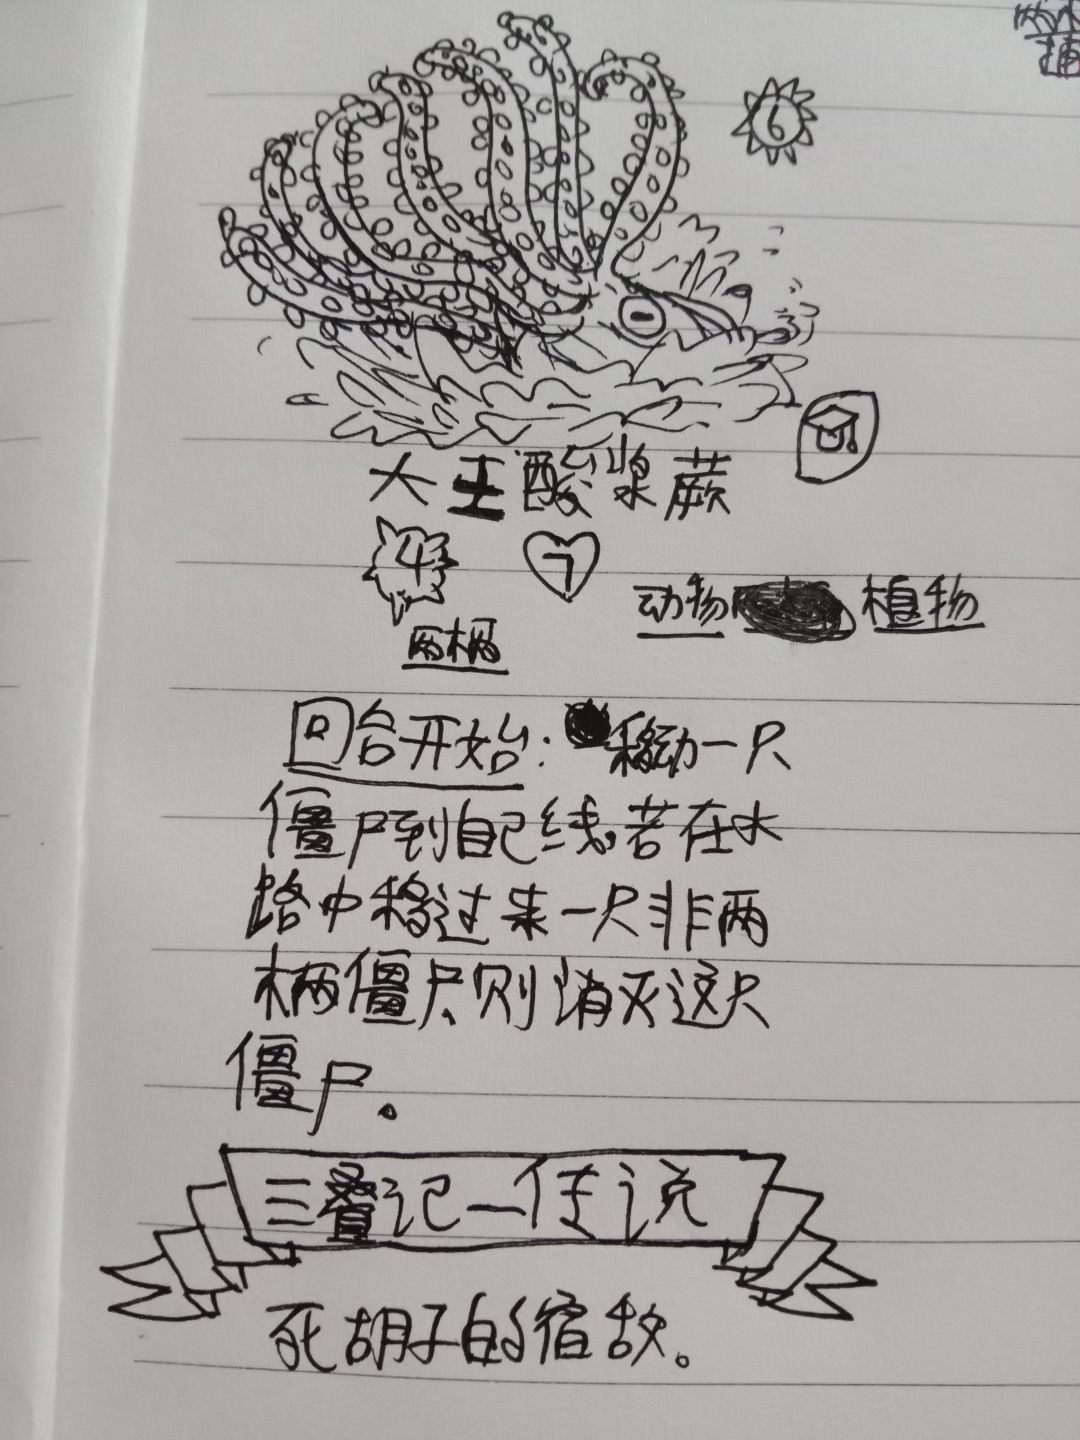 6
大王酸浆蕨
4 7
动物 植物
两栖
回合开始：移动一只
僵尸到自己线，若在水
路中移过来一只非两
栖僵尸，则消灭这只
僵尸。
三叠记—传说
死胡子的宿敌。